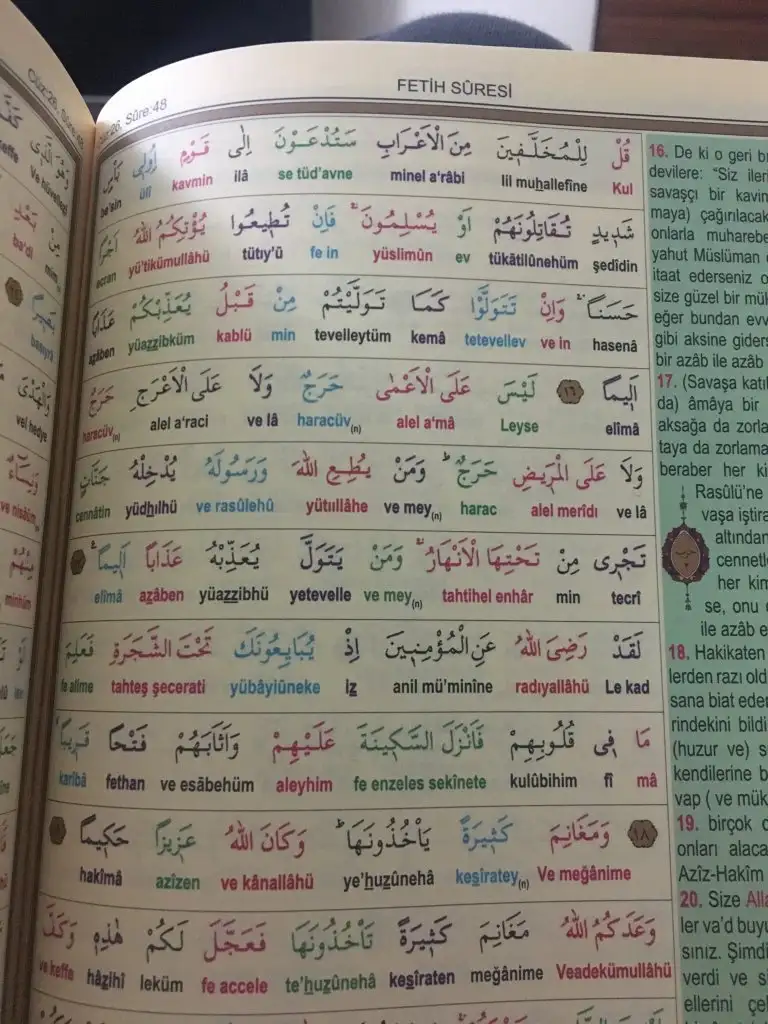 FETİH SÛRESİ
Sûre:48
قُلْ لِلْمُخَلَّفٖينَ مِنَ الْاَعْرَابِ سَتُدْعَوْنَ اِلٰى قَوْمٍ اُولٖى بَاْسٍ
Kul lil muhallefîne minel a'râbi se tüd'avne ilâ kavmin ülî be'sin
شَدٖيدٍ تُقَاتِلُونَهُمْ اَوْ يُسْلِمُونَ فَاِنْ تُطٖيعُوا يُؤْتِكُمُ اللّٰهُ اَجْرًا
şedîdin tükâtilûnehüm ev yüslimûn fe in tütıy'û yü'tikümullâhü ecran
حَسَنًا وَاِنْ تَتَوَلَّوْا كَمَا تَوَلَّيْتُمْ مِنْ قَبْلُ يُعَذِّبْكُمْ عَذَابًا
hasenâ ve in tetevellev kemâ tevelleytüm min kablü yüazzibküm azâben
اَلٖيمًا ﴿١٦﴾ لَيْسَ عَلَى الْاَعْمٰى حَرَجٌ وَلَا عَلَى الْاَعْرَجِ حَرَجٌ
elîmâ Leyse alel a'mâ haracüv(n) ve lâ alel a'raci haracüv(n)
وَلَا عَلَى الْمَرٖيضِ حَرَجٌ وَمَنْ يُطِعِ اللّٰهَ وَرَسُولَهُ يُدْخِلْهُ جَنَّاتٍ
ve lâ alel merîdı harac ve mey(n) yütııllâhe ve rasûlehû yüdhılhü cennâtin
تَجْرٖى مِنْ تَحْتِهَا الْاَنْهَارُ وَمَنْ يَتَوَلَّ يُعَذِّبْهُ عَذَابًا اَلٖيمًا
tecrî min tahtihel enhâr ve mey(n) yetevelle yüazzibhü azâben elîmâ
لَقَدْ رَضِىَ اللّٰهُ عَنِ الْمُؤْمِنٖينَ اِذْ يُبَايِعُونَكَ تَحْتَ الشَّجَرَةِ فَعَلِمَ
Le kad radıyallâhü anil mü'minîne iz yübâyiûneke tahteş şecerati fe alime
مَا فٖى قُلُوبِهِمْ فَاَنْزَلَ السَّكٖينَةَ عَلَيْهِمْ وَاَثَابَهُمْ فَتْحًا قَرٖيبًا
mâ fî kulûbihim fe enzeles sekînete aleyhim ve esâbehüm fethan karîbâ
﴿١٨﴾ وَمَغَانِمَ كَثٖيرَةً يَاْخُذُونَهَا وَكَانَ اللّٰهُ عَزٖيزًا حَكٖيمًا
Ve meğânime kesîratey(n) ye'huzûnehâ ve kânallâhü azîzen hakîmâ
وَعَدَكُمُ اللّٰهُ مَغَانِمَ كَثٖيرَةً تَاْخُذُونَهَا فَعَجَّلَ لَكُمْ هٰذِهٖ وَكَفَّ
Veadekümullâhü meğânime kesîraten te'huzûnehâ fe accele leküm hâzihî ve keffe
16. De ki o geri
devilere: "Siz
savaşçı bir kavim
maya) çağırılacak
onlarla muharebe
yahut Müslüman
itaat ederseniz
size güzel bir
eğer bundan
gibi aksine
bir azâb ile azâb
17. (Savaşa
da) âmâya bir
aksağa da
taya da zorlama
beraber her
Rasûlü'ne
vaşa
altından
her kim
se, onu
ile azâb
18. Hakikaten
lerden razı
sana biat
rindekini
(huzur ve)
kendilerine
vap ( ve
19. birçok
onları
Azîz-Hakîm
20. Size
ler va'd
sınız. Şimdi
verdi ve
ellerini